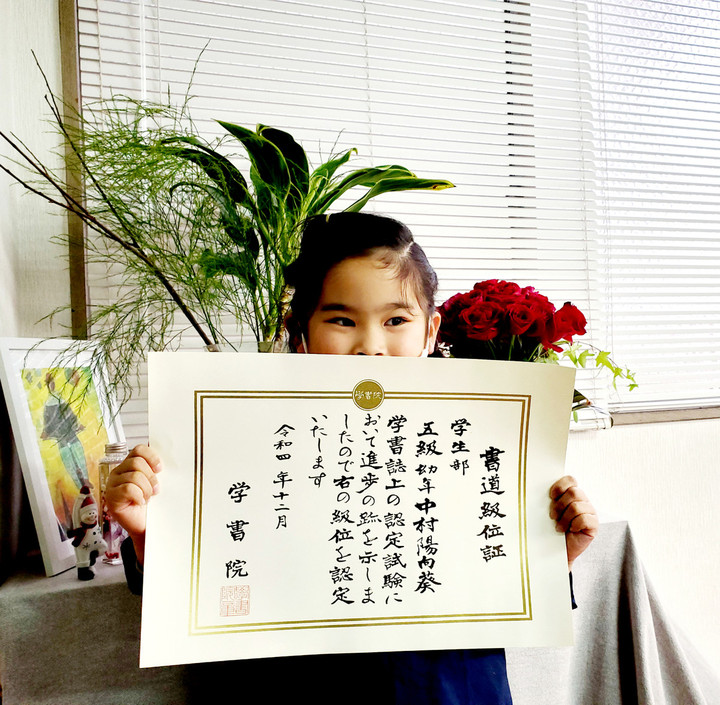 学書院
書道級位証
学生部
五級幼年中村陽向葵
学書誌上の認定試験に
おいて進歩の跡を示しま
したので右の級位を認定
いたします
令和四年十二月
学書院